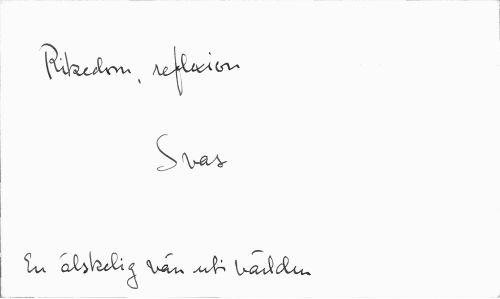 Rikedom, reflexion
Svas
En älskelig vän uti världen